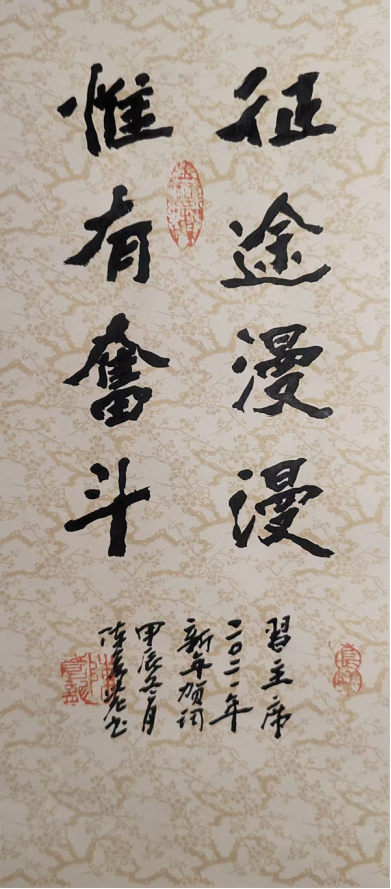 征途漫漫
惟有奮斗
習主席
二〇二一年
新年贺词
甲辰冬月
陆
书